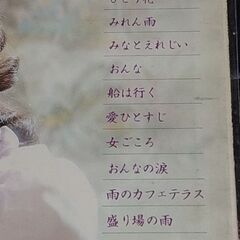 みれん雨
みなとえれじい
おんな
船は行く
愛ひとすじ
女ごころ
おんなの涙
雨のカフェテラス
盛り場の雨